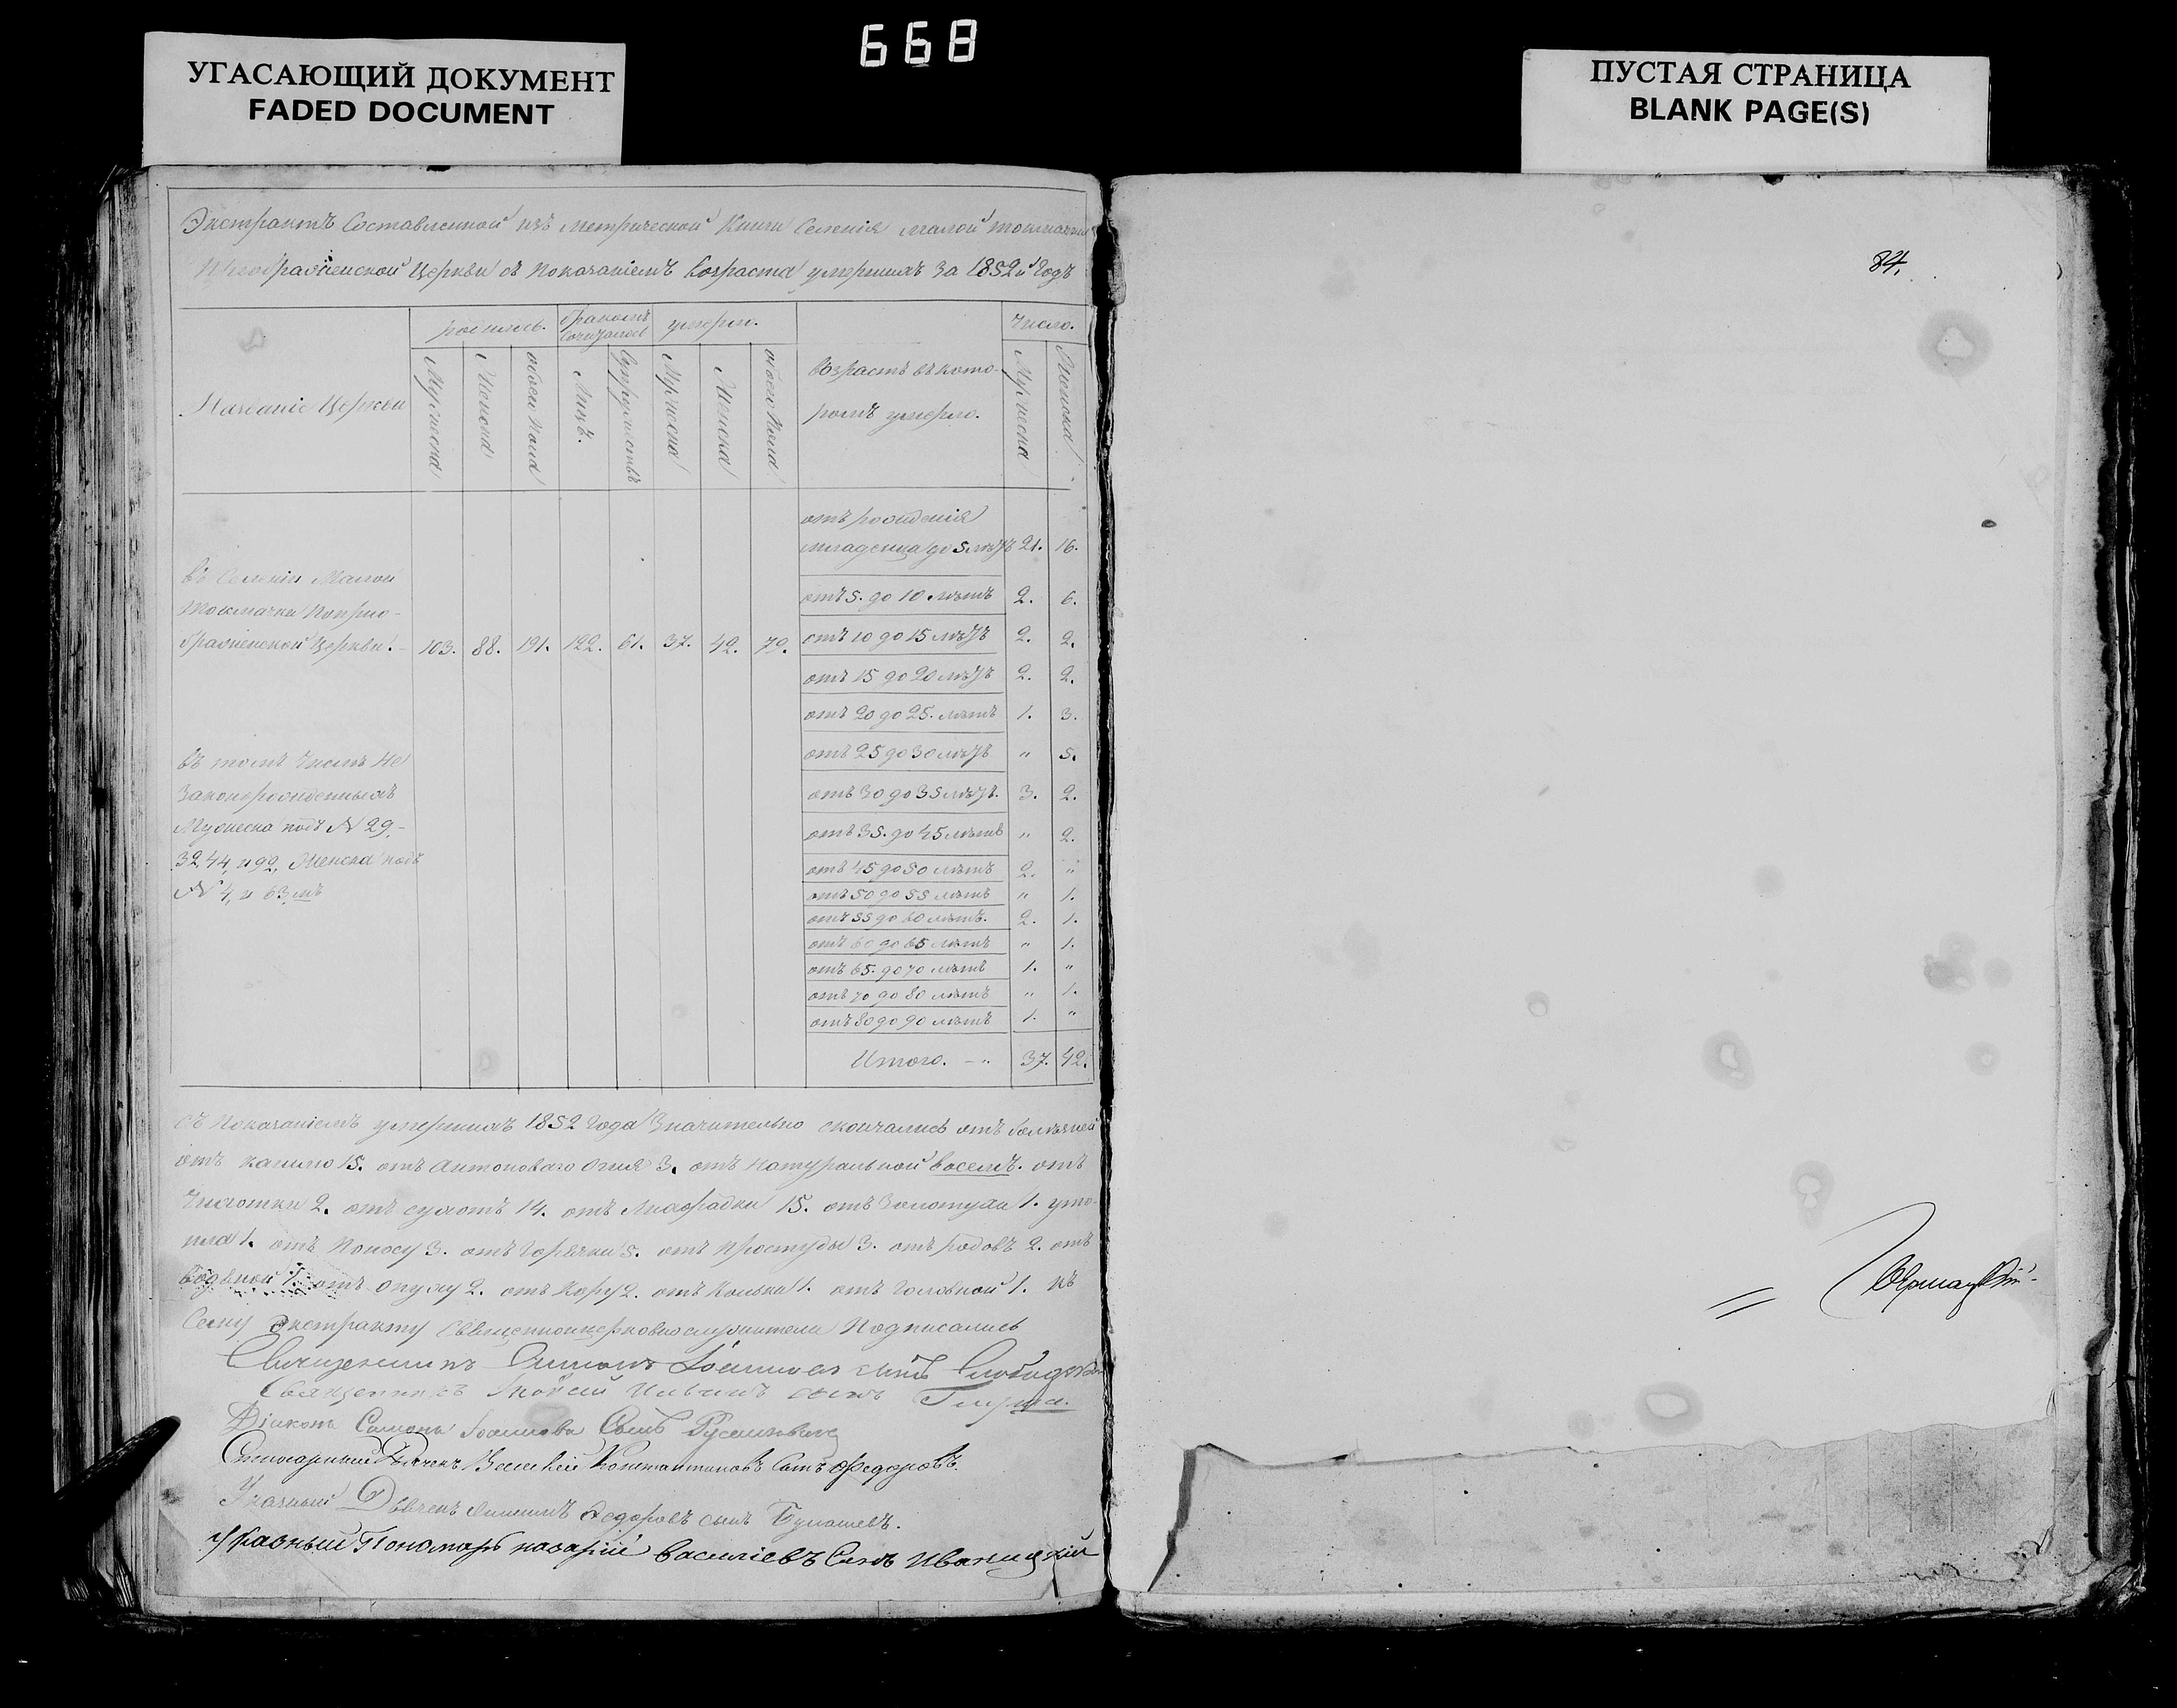 668
УГАСАЮЩИЙ ДОКУМЕНТ
FADED DOCUMENT
ПУСТАЯ СТРАНИЦА
BLANK PAGE(S)
84.
Экстрактъ Составленной изъ метрической Книги Селенія малой токмачки
Церкви съ показаніемъ Возраста умершихъ за 1852й Годъ
Названіе Церкви
родилось.
бракомъ сочеталось
умерли.
возрастъ въ кото-
ромъ умерло.
Число.
Мужеска
Женска
обоего пола
Лицъ.
Супружествъ
Мужеска
Женска
обоего пола
Мужеска
Женска
отъ рожденія
младенца до 5 летъ 21. 16.
отъ 5. до 10 летъ 2. 6.
отъ 10 до 15 летъ 2. 2.
отъ 15 до 20 летъ 2. 2.
отъ 20 до 25. летъ 1. 3.
отъ 25 до 30 летъ " 5.
отъ 30 до 35 летъ. 3. 2.
отъ 35. до 45 летъ " 2.
отъ 45 до 50 летъ 2. "
отъ 50 до 55 летъ " 1.
отъ 55 до 60 летъ. 2. 1.
отъ 60 до 65 летъ " 1.
отъ 65. до 70 летъ 1. "
отъ 70 до 80 летъ " 1.
отъ 80 до 90 летъ 1. "
Итого. 37. 42.
въ Селеніи Малой
Токмачки
Церкви. 103. 88. 191. 122. 61. 37. 42. 79.
въ томъ Числе не
Законорожденныхъ
Мужеска подъ № 29.
32, 44, и 92, Женска подъ
№ 4, и 63,мъ
съ показаніемъ умершихъ 1852 Года Значительно скончались отъ болезней
отъ кашлю 15. отъ антоноваго огня 3. отъ натуральной восемъ. отъ
Чихотки 2. отъ сухотъ 14. отъ Лихорадки 15. отъ Золотухи 1. уто-
пла 1. отъ поносу 3. отъ Горячки 5. отъ простуды 3. отъ родовъ 2. отъ
водяной 1. отъ опуху 2. отъ Кору 2. отъ Колька 1. отъ Головной 1. къ
Сему экстракту священноцерковнослужители Подписались
Священникъ Симонъ Іоанновъ сынъ
Священникъ сынъ
Діаконъ Самонъ Іоанновъ Сынъ
Дьячекъ Василій Константиновъ Сынъ Федоровъ.
Указный Дьячекъ Федоровъ сынъ
Указный Пономарь назарій василіевъ Сынъ Иваницкій